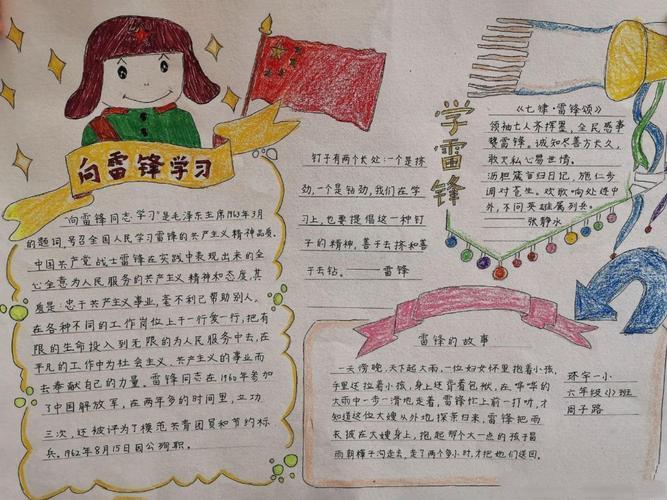 向雷锋学习
"向雷锋同志学习"是毛泽东主席1963年3月
的题词,号召全国人民学习雷锋的共产主义精神品质.
中国共产党战士雷锋在实践中表现出来的全
心全意为人民服务的共产主义精神和态度,其
实质是:忠于共产主义事业,毫不利己帮助别人,
在各种不同的工作岗位上干一行爱一行,把有
限的生命投入到无限的为人民服务中去,在
平凡的工作中为社会主义、共产主义的事业而
去奉献自己的力量。雷锋同志在1960年参加
了中国解放军,在两年多的时间里,立功
三次,还被评为了模范共青团员和节约标
兵。1962年8月15日因公殉职。
钉子有两个长处:一个是挤
劲,一个是钻劲,我们在学
习上,也要提倡这一种钉
子的精神,善于去挤和善
于去钻。——雷锋
学雷锋
《七律·雷锋颂》
领袖七人齐挥墨,全民感事
赞雷锋。诚知尽善方大久,
敢灭私心易世情。
沥胆箴百归日记,施仁步
调对苍生。欢歌响处进中
外,不问英雄属列兵。
——张静水
雷锋的故事
一天傍晚,天下起大雨,一位妇女怀里抱着小孩,
手里还拉着小孩,身上还背着包袱,在哗哗的
大雨中一步一滑地走着,雷锋忙上前一打听,才
知道这位大嫂从外地探亲归来,雷锋把雨
衣披在大嫂身上,抱起那个大一点的孩子冒
雨朝樟子沟走去,走了两个多小时,才把他们送回。
环宇一小
六年级小班
周子路